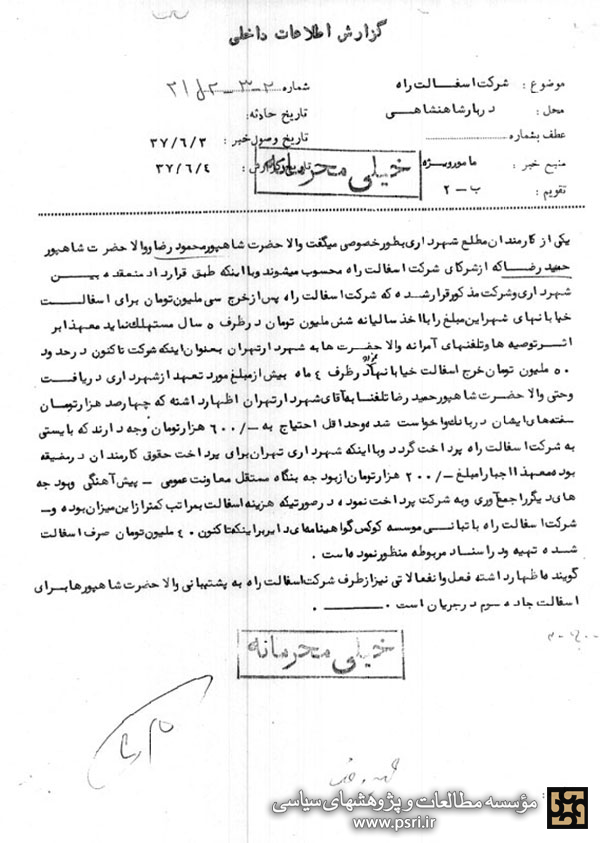 گزارش اطلاعات داخلی
موضوع : شرکت اسفالت راه
شماره
محل : دربار شاهنشاهی
تاریخ حادثه:
عطف بشماره
تاریخ وصول خبر : ۳۷/۶/۳
منبع خبر : مامور ویژه
۳۷/۶/۴
تقویم : ب-۲
خیلی محرمانه
یکی از کارمندان مطلع شهرداری بطور خصوصی میگفت والاحضرت شاهپور محمود رضا ووالاحضرت شاهپور
حمید رضا که از شرکای شرکت اسفالت راه محسوب میشوند وبا اینکه طبق قرارداد منعقده بین
شهرداری وشرکت مذکور قرار شده که شرکت اسفالت راه پس از خرج سی ملیون تومان برای اسفالت
خیابانهای شهر این مبلغ را با اخذ سالیانه شش ملیون تومان در ظرف ۵ سال مستهلک نماید معهذا بر
اثر توصیه ها وتلفنهای آمرانه والاحضرت ها به شهردار تهران بعنوان اینکه شرکت تاکنون در حدود
۵۰ ملیون تومان خرج اسفالت خیابانها در ظرف ٤ ماه بیش از مبلغ مورد تعهد از شهرداری دریافت
وحتی والاحضرت شاهپور حمید رضا تلفنا به آقای شهردار تهران اظهار داشته که چهارصد هزار تومان
سفته های ایشان در بانک واخواست شده وحداقل احتیاج به -/۶۰۰ هزار تومان وجه دارند که بایستی
به شرکت اسفالت راه پرداخت گردد وبا اینکه شهرداری تهران برای پرداخت حقوق کارمندان در مضیقه
بوده معهذا اجبارا مبلغ -/۲۰۰ هزار تومان از بودجه بنگاه مستقل معاونت عمومی - پیش آهنگی وبودجه
های دیگر را جمع آوری وبه شرکت پرداخت نموده در صورتیکه هزینه اسفالت بمراتب کمتر از این میزان بوده و-
شرکت اسفالت راه با تبانی موسسه کوکس گواهینامه های دایر براینکه تاکنون ٤۰ ملیون تومان صرف اسفالت
شده تهیه ودر اسناد مربوطه منظور نموده است .
گوینده اظهار داشته فعل وانفعالاتی نیز از طرف شرکت اسفالت راه به پشتیبانی والاحضرت شاهپورها برای
اسفالت جاده سوم در جریان است .
خیلی محرمانه
مؤسسه مطالعات و پژوهشهای سیاسی
www.psri.ir